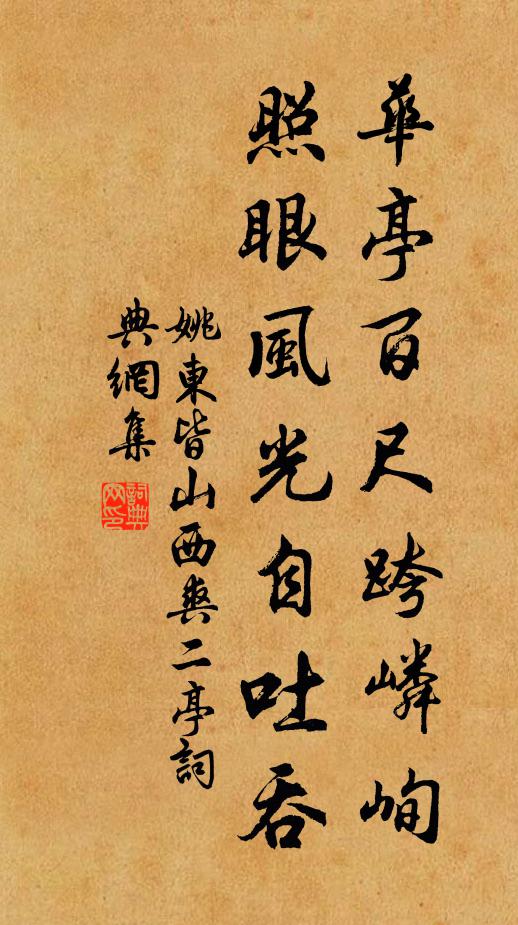 華亭百尺跨嶙峋
照眼風光自吐吞
姚東皆山西爽二亭詞
典網集
詞典
网印